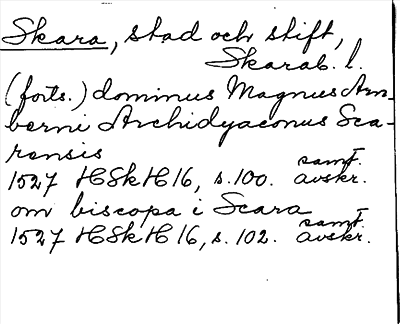 Skara, stad och stift,
Skarab. l.
(forts.) dominus Magnus Arn-
berni Archidyaconus Sca-
rensis
1527 HSkH 16, s. 100. samt. avskr.
om biscopa i Scara
1527 HSkH 16, s. 102. samt. avskr.